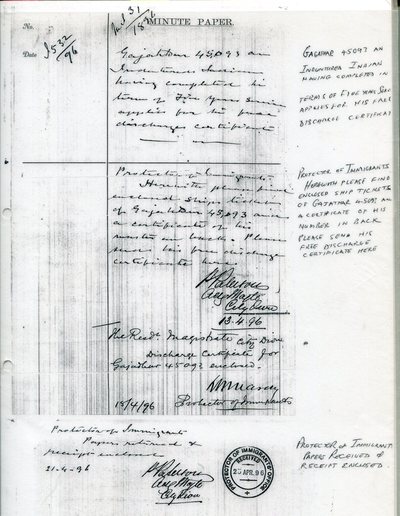 MINUTE PAPER.
No.
Date
J532/96
Gajadhar 45093 an
Indentured Indian
having completed his
term of Five years service
applies for his free
discharge certificate
GAJATHAR 45093 AN
INDENTURED INDIAN
HAVING COMPLETED IN
TERMS OF FIVE YEARS SER
APPLIES FOR HIS FREE
DISCHARGE CERTIFICAT
Protector of Immigrants
Herewith please find
enclosed ships ticket
of Gajadhar 45093 and
a certificate of his
on back. Please
send his free discharge
certificate here
City Divn
13.4.96
PROTECTOR OF IMMIGRANTS
HEREWITH PLEASE FIND
ENCLOSED SHIP TICKETS
OF GAJATHAR 45093 AN
A CERTIFICATE OF HIS
NUMBER IN BACK
PLEASE SEND HIS
FREE DISCHARGE
CERTIFICATE HERE
The Resdt Magistrate City Divn
Discharge Certificate for
Gajadhar 45093 enclosed.
18/4/96
Protector of Immigrants
Protector of Immigrants
Papers returned &
receipt enclosed
21-4-96
City Divn
PROTECTOR OF IMMIGRANTS' OFFICE
RECEIVED
25 APR. 96
PROTECTOR OF IMMIGRANT
PAPERS RECEIVED &
RECEIPT ENCLOSED.